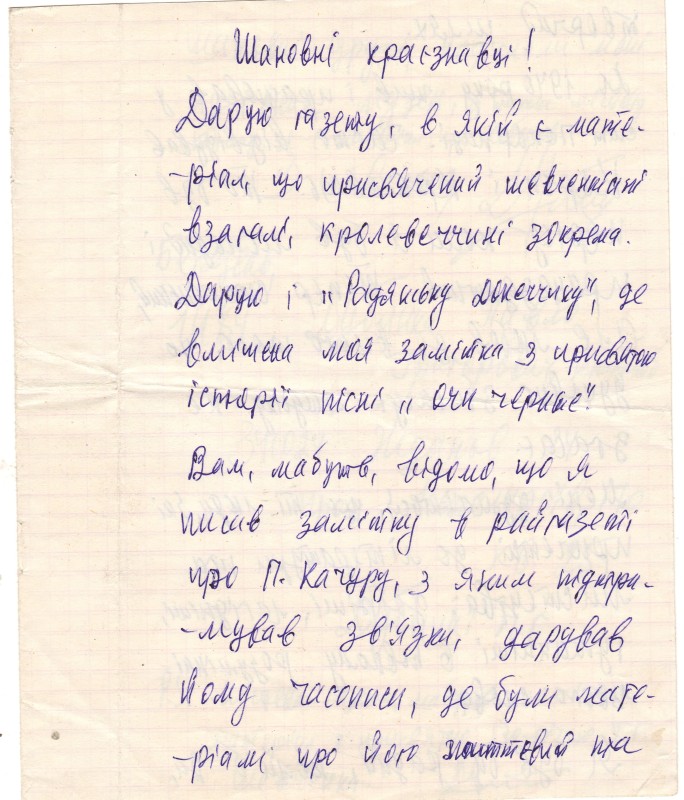 Шановні краєзнавці!
Дарую газету, в якій є мате-
-ріал, що присвячений шевченкіані
взагалі, кролевеччині зокрема.
Дарую і "Радянську Донеччину", де
вміщена моя замітка з присвятою
історії пісні "Очи черные".
Вам, мабуть, відомо, що я
писав замітку в райгазеті
про П. Качуру, з яким підтри-
-мував зв'язки, дарував
йому часописи, де були мате-
-ріалі про його життєвий та